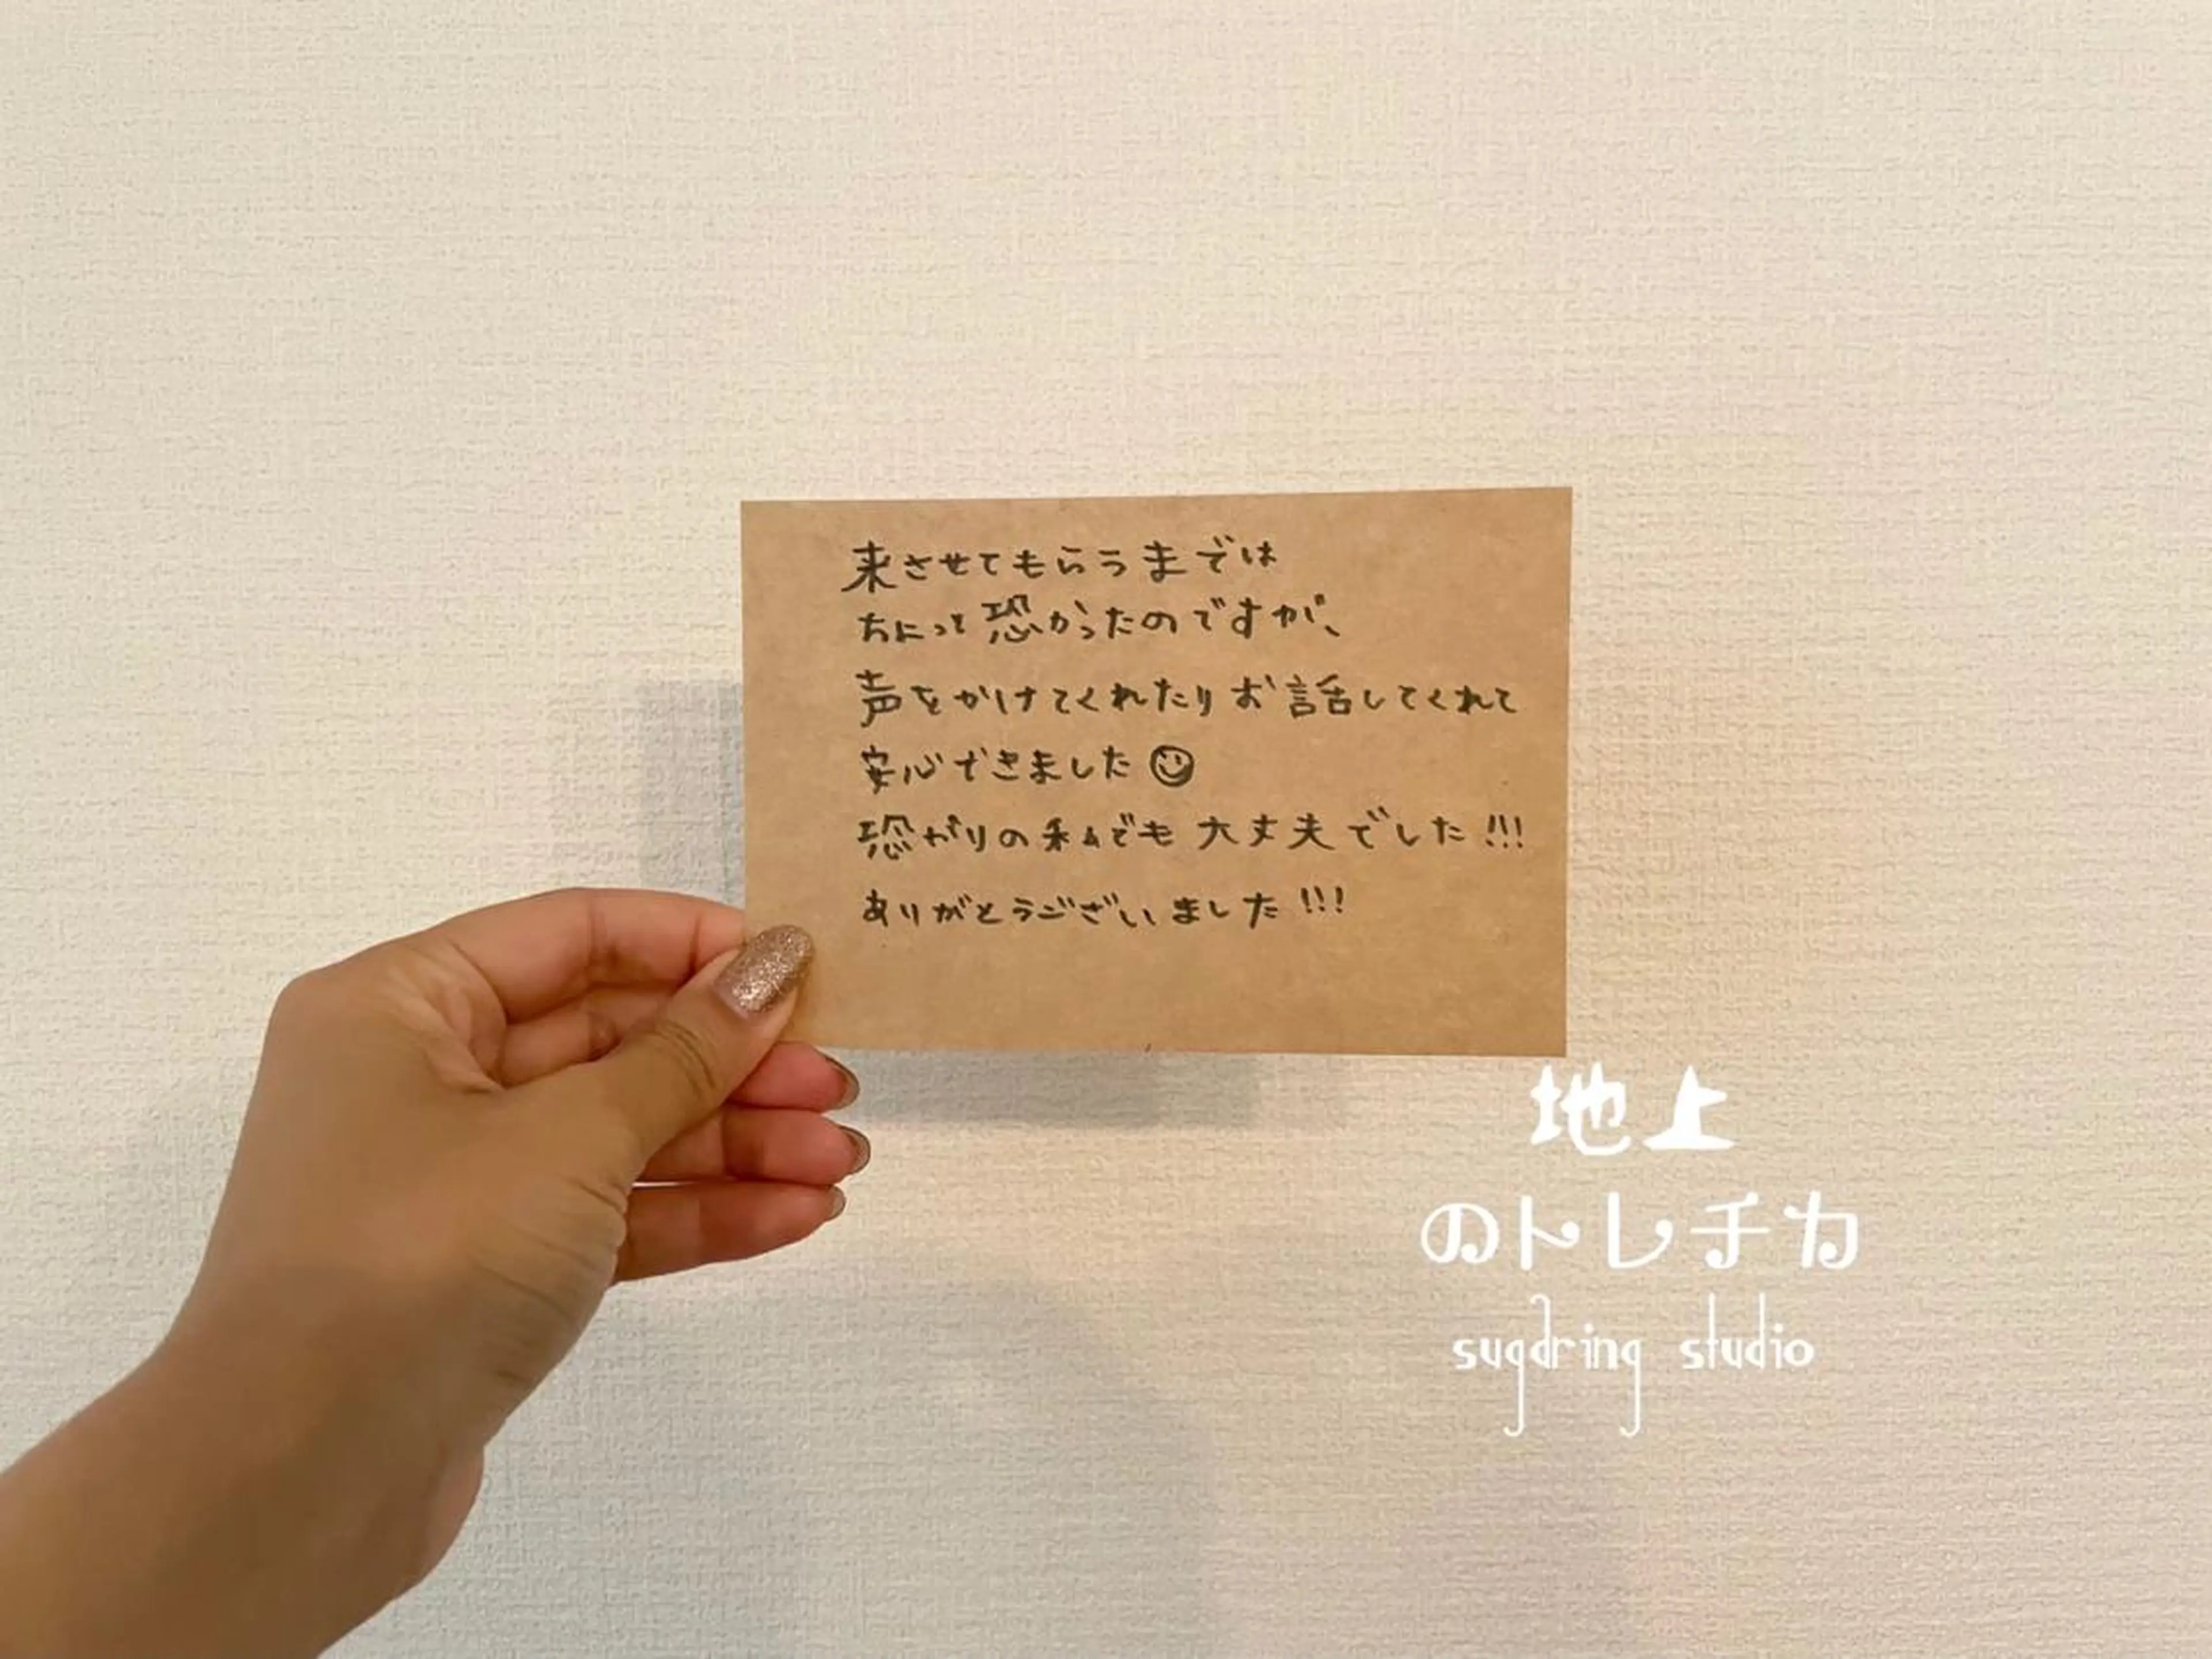 来させてもらうまでは
ちょっと恐かったのですが、
声をかけてくれたりお話してくれて
安心できました
恐がりの私でも大丈夫でした!!!
ありがとうございました!!!
地上
のトレチカ
sugaring studio